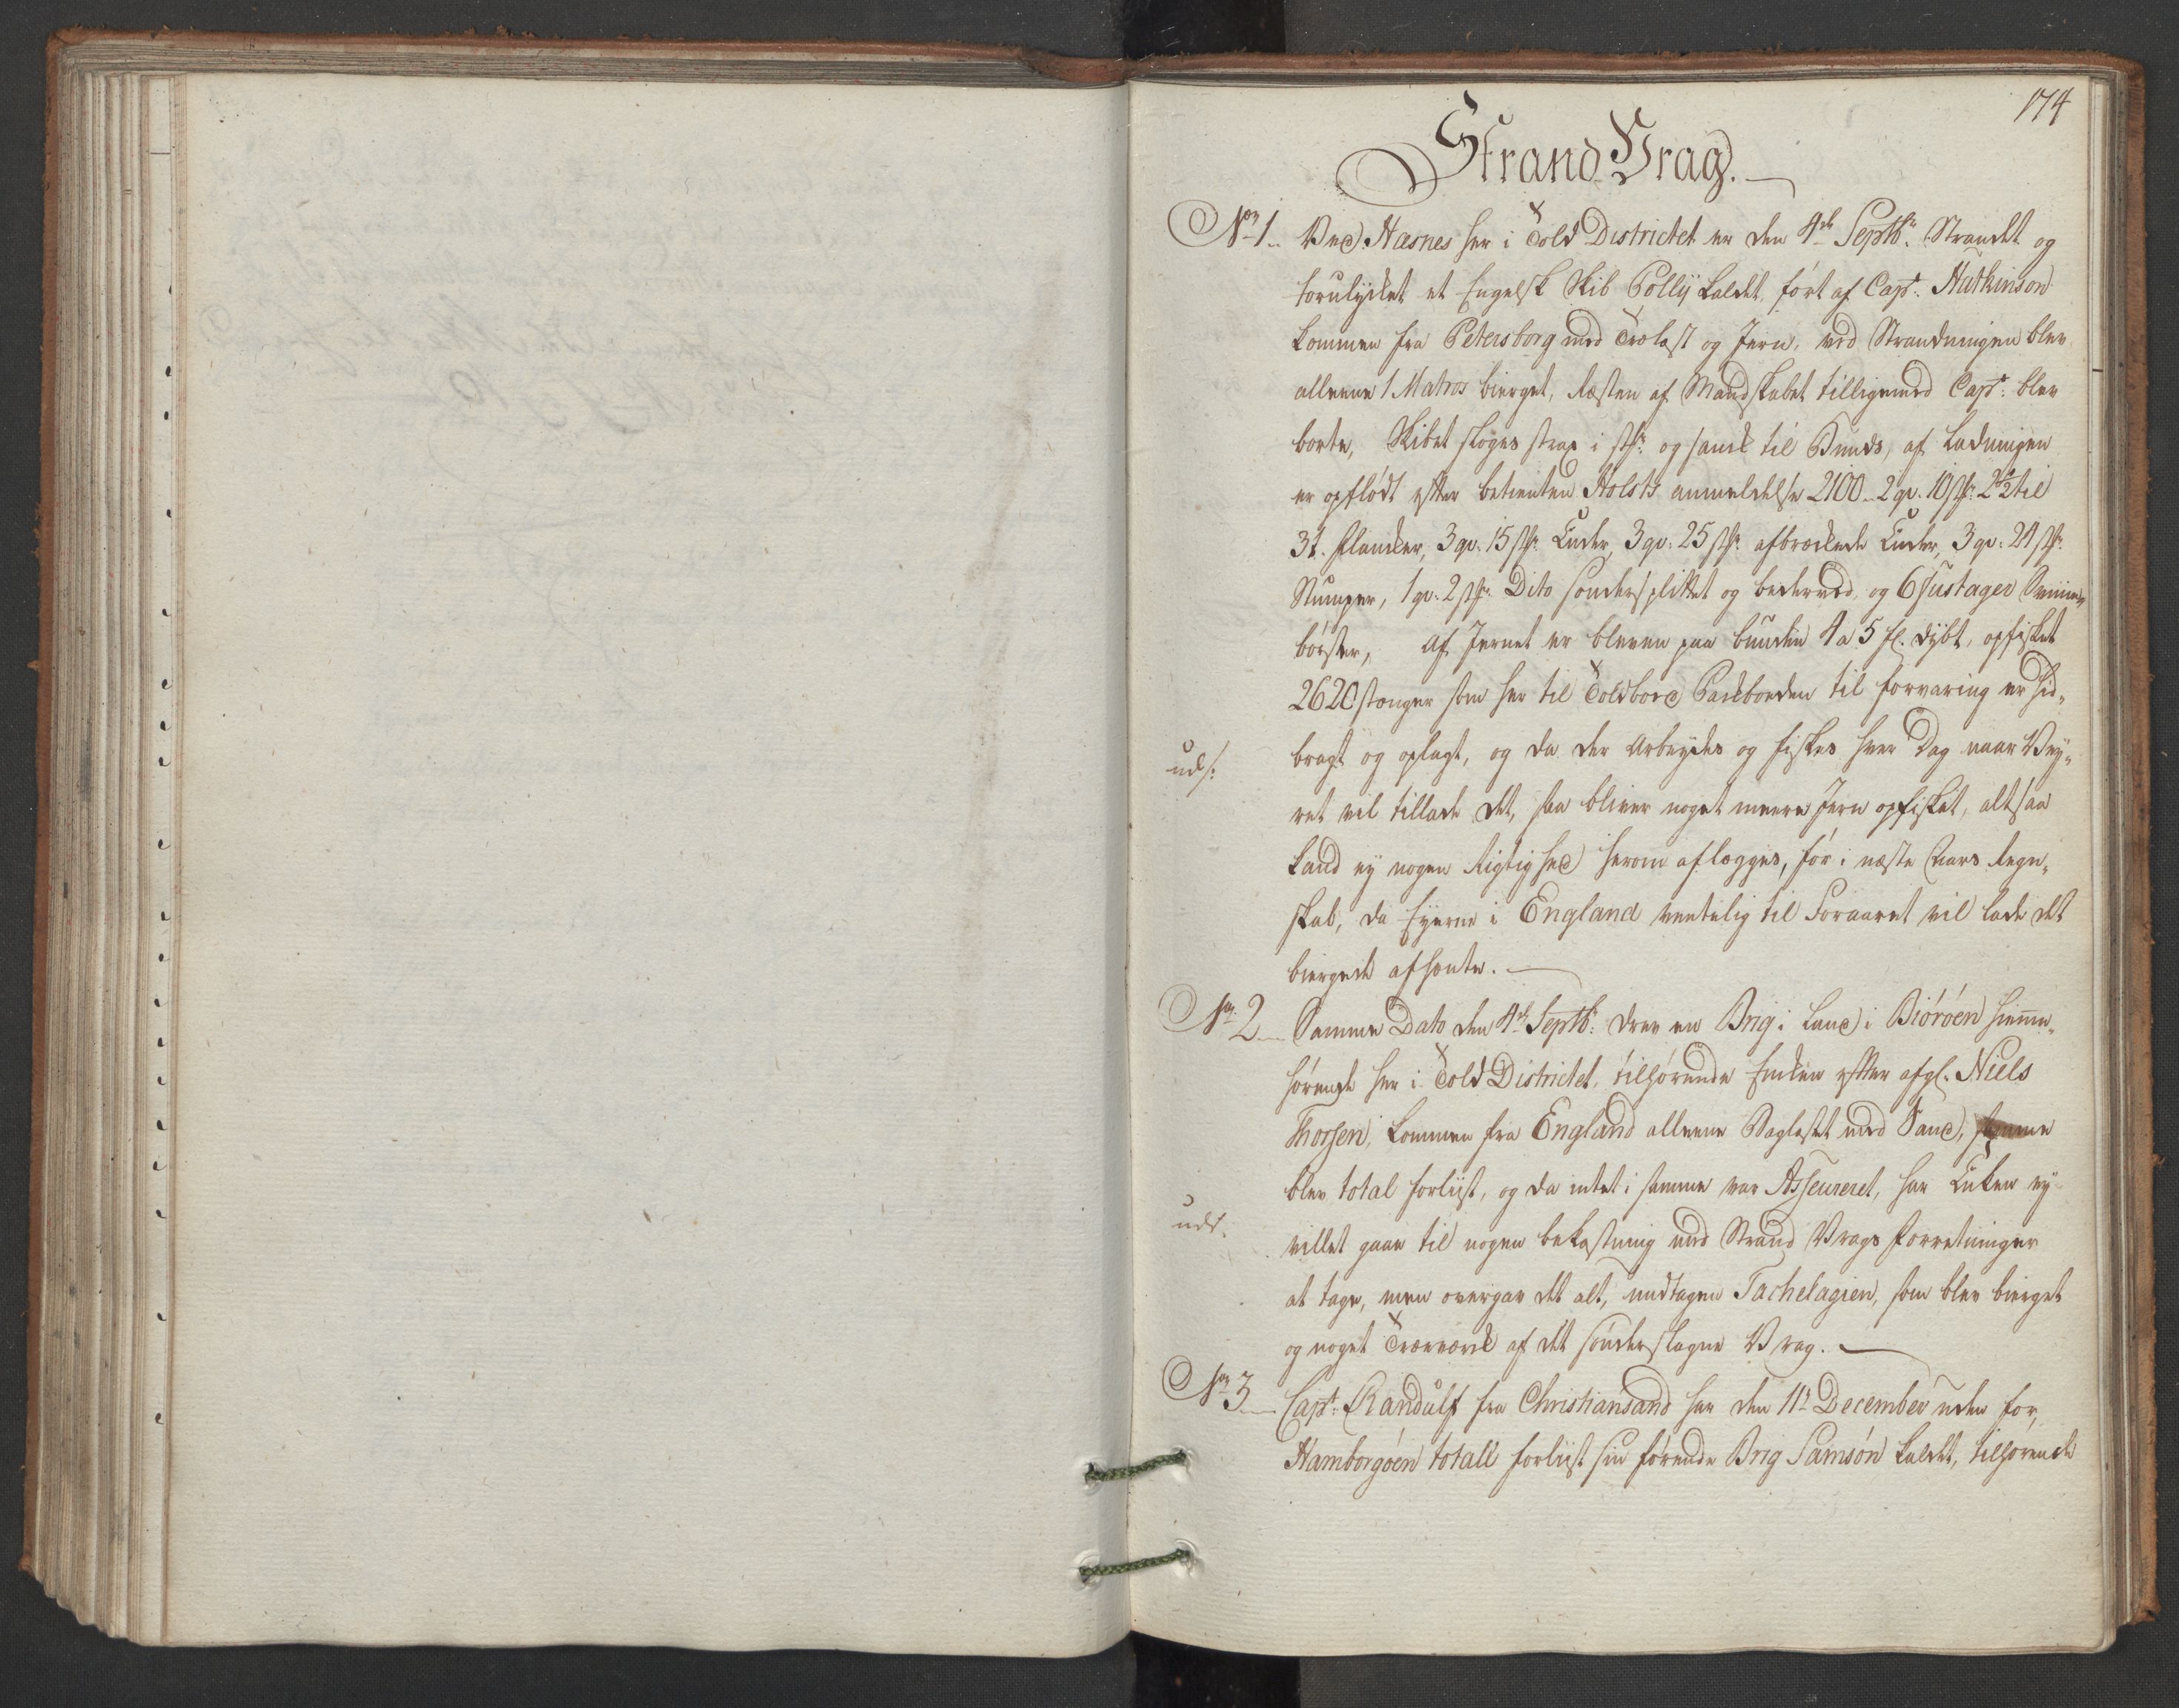 174
Strand Vrag.
No 1. Ved Hasnes her i Told Districtet er den 4de Septbr: Strandet og
forulycket et Engelsk Skib Polly kaldet, ført af Capt: Hutkinson
kommen fra Petersborg med Trælast og Jern, ved Strandningen blev
alleene 1 Matros bierget, Resten af Mandskabet tilligemed Capt: blev
borte, Skibet sloges strax i st: og sank til Bunds, af Ladningen
er opflødt efter betienten Holsts anmeldelse 2100- 2 qv. 10 st: 2½ til
3 t. Plancker, 3 qv: 15 st: Ender, 3 qv: 25 st: afbrækkede Ender, 3 qv: 24 st:
Stumper, 1 qv: 2 st: Dito sondersplittet og bedervet, og 6 Fustager Sviin-
børster, Af Jernet er bleven paa bunden 4 a 5 fl. dybt, opfisket
2620 stænger som her til Toldbod Pakboeden til forvaring er hid-
bragt og oplagt, og da der Arbeydes og fiskes hver Dag naar Vey-
ret vil tillade det, saa bliver noget meere Jern opfisket, altsaa
uds:
kand ey nogen Rigtighed herom aflegges, før i næste Aars Regn-
skab, da Eyerne i England ventelig til Foraaret vil lade det
biergede afhente.
No 2. Samme Dato den 4de Septbr: drev en Brig i Land i Biørøen hiemme-
hørende her i Told Districtet, tilhørende Enken efter afgl. Niels
Thorsen, kommen fra England alleene Baglastet med Sand, samme
blev total forliist, og da intet i samme var Asseureret, har Enken ey
udst.
villet gaae til nogen bekostning med Strand Vrags forretninger
at tage, men overgav det alt, undtagen Tachelagien, som blev bierget
og noget Træeværck af det sønderslagne Vrag.
No 3. Capt: Randulf fra Christiansand har den 11te December uden for
Hamborgøen totall forliist sin førende Brig Samsøn kaldet, tilhørende